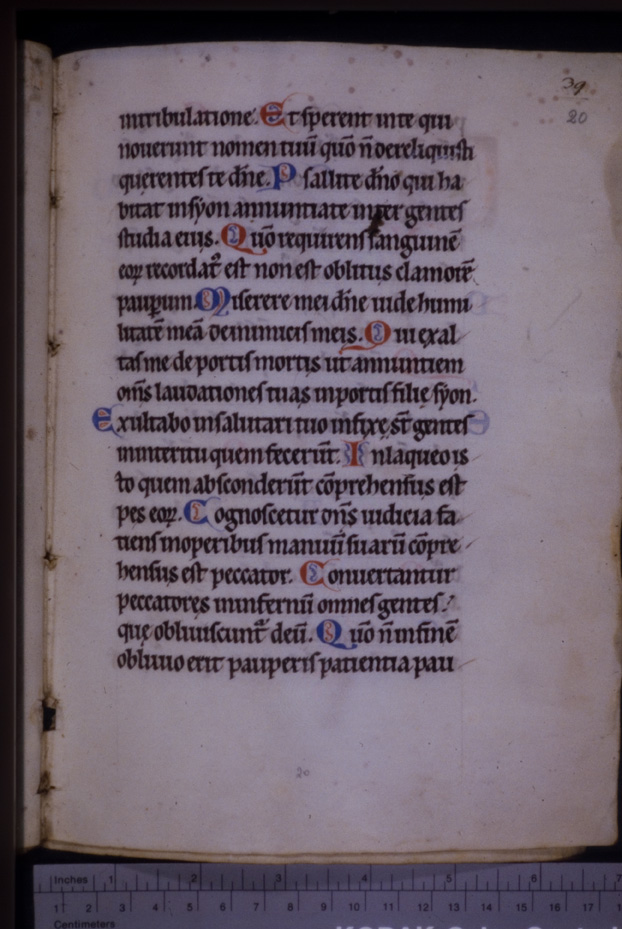 39
20
intribulatione. Et sperent inte qui
nouerunt nomen tuū quō ñ dereliquisti
querentes te dñe. Psallite dño qui ha
bitat insyon annuntiate inter gentes
studia eius. Quō requirens sanguinē
eoꝝ recordatꝰ est non est oblitus clamorē
pauꝑum. Miserere mei dñe uide humi
litatē meā de inimicis meis. Qui exal
tas me de portis mortis ut annuntiem
om̄s laudationes tuas inportis filie syon.
Exultabo insalutari tuo infixe st̄ gentes
ininteritu quem fecerūt. Inlaqueo is
to quem absconderūt cōprehensus est
pes eoꝝ. Cognoscetur dn̄s iudicia fa
tiens inoperibus manuū suarū cōpre
hensus est peccator. Conuertantur
peccatores ininfernū omnes gentes.
que obliuiscunt᷑ deū. Quō ñ infinē
obliuio erit pauperis patientia pau
20
Inches 1 2 3 4 5 6 7
1 2 3 4 5 6 7 8 9 10 11 12 13 14 15 16 17
Centimeters